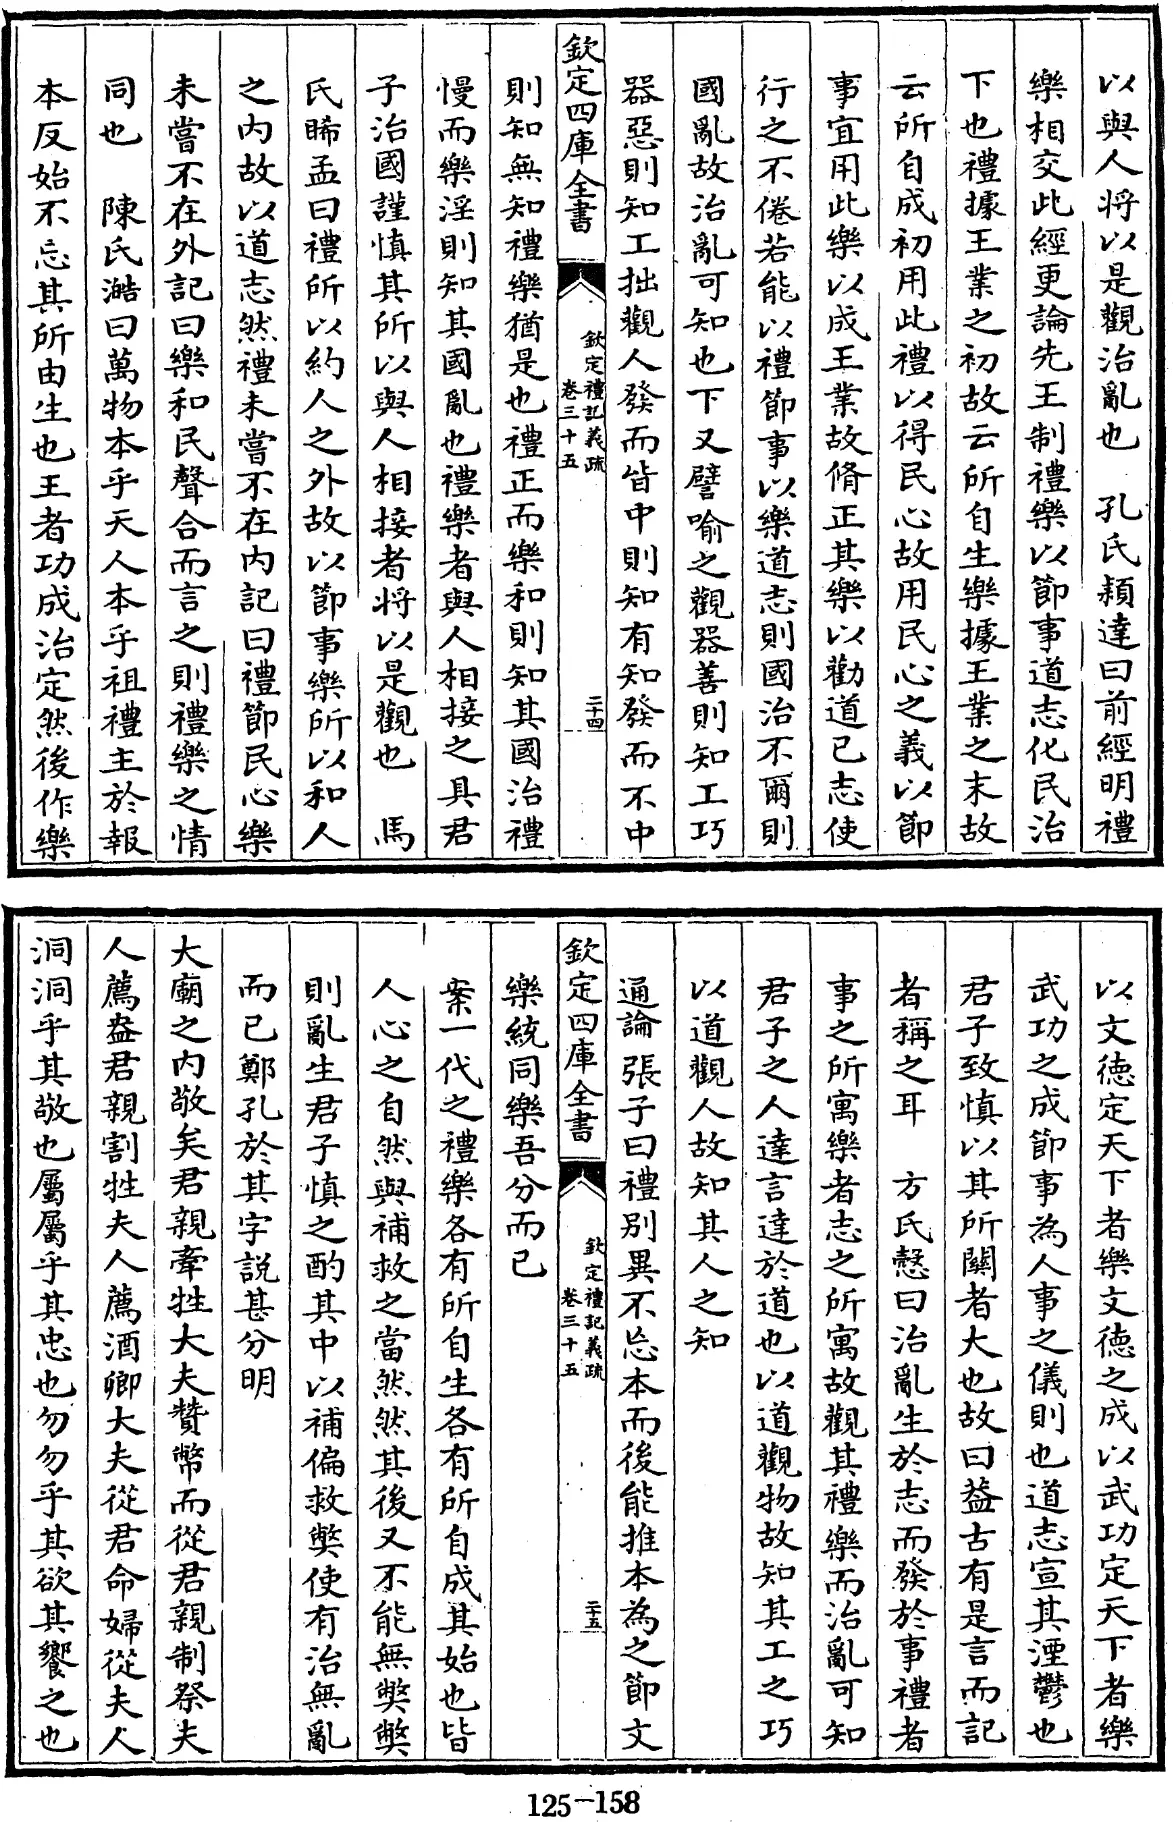 以與人将以是觀治亂也　孔氏穎達曰前經明禮
樂相交此經更論先王制禮樂以節事道志化民治
下也禮據王業之初故云所自生樂據王業之末故
云所自成初用此禮以得民心故用民心之義以節
事宜用此樂以成王業故脩正其樂以勸道已志使
行之不倦若能以禮節事以樂道志則國治不爾則
國亂故治亂可知也下又譬喻之觀器善則知工巧
器惡則知工拙觀人發而皆中則知有知發而不中
欽定四庫全書
欽定禮記義疏
卷三十五
三十四
則知無知禮樂猶是也禮正而樂和則知其國治禮
慢而樂淫則知其國亂也禮樂者與人相接之具君
子治國謹慎其所以與人相接者将以是觀也　馬
氏睎孟曰禮所以約人之外故以節事樂所以和人
之内故以道志然禮未嘗不在内記曰禮節民心樂
未嘗不在外記曰樂和民聲合而言之則禮樂之情
同也　陳氏澔曰萬物本乎天人本乎祖禮主於報
本反始不忘其所由生也王者功成治定然後作樂
以文徳定天下者樂文徳之成以武功定天下者樂
武功之成節事為人事之儀則也道志宣其湮鬱也
君子致慎以其所關者大也故曰葢古有是言而記
者稱之耳　方氏慤曰治亂生於志而發於事禮者
事之所寓樂者志之所寓故觀其禮樂而治亂可知
君子之人達言達於道也以道觀物故知其工之巧
以道觀人故知其人之知
通論張子曰禮別異不忘本而後能推本為之節文
欽定四庫全書
欽定禮記義疏
卷三十五
三十五
樂統同樂吾分而已
案一代之禮樂各有所自生各有所自成其始也皆
人心之自然與補救之當然然其後又不能無弊弊
則亂生君子慎之酌其中以補偏救弊使有治無亂
而已鄭孔於其字説甚分明
大廟之内敬矣君親牽牲大夫贊幣而從君親制祭夫
人薦盎君親割牲夫人薦酒卿大夫從君命婦從夫人
洞洞乎其敬也屬屬乎其忠也勿勿乎其欲其饗之也
125-158